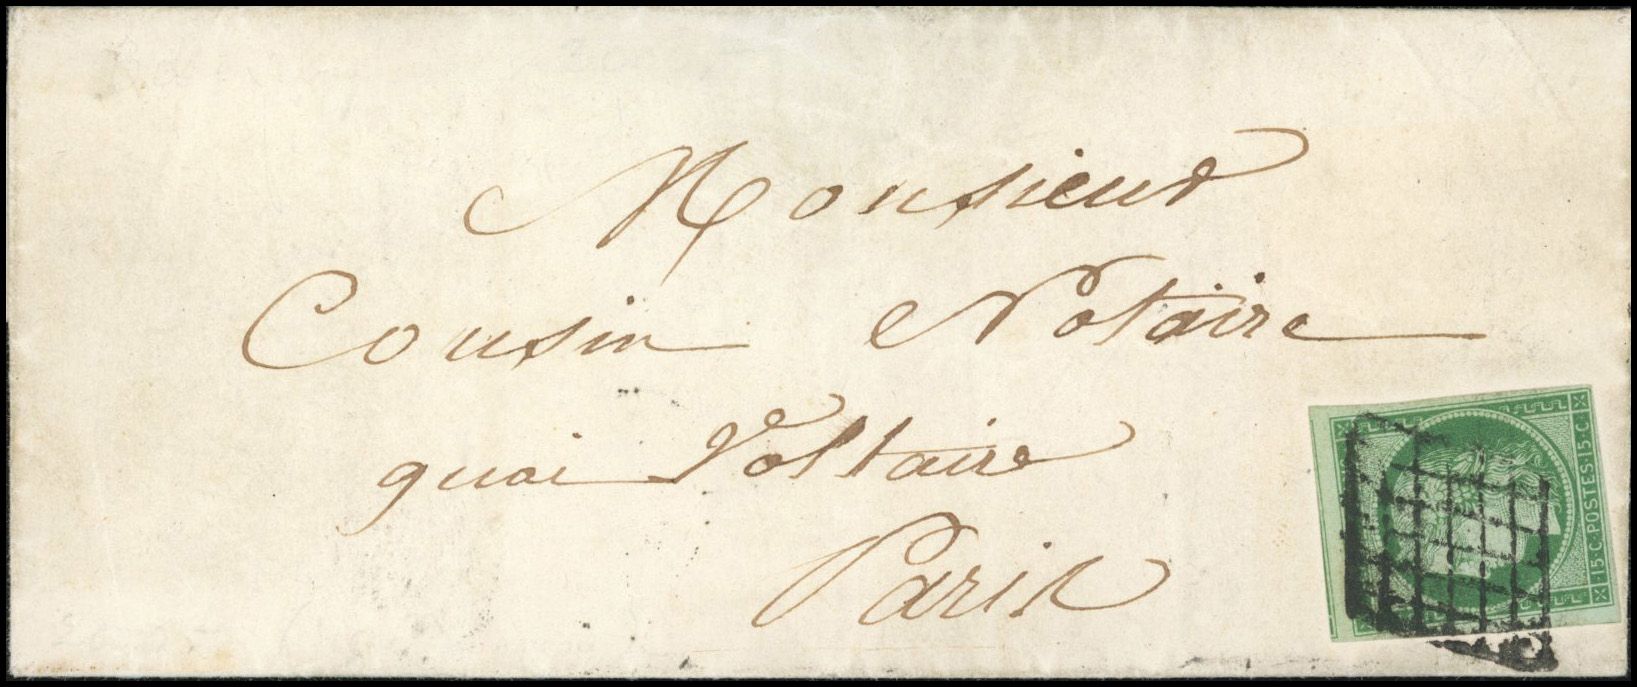 Monsieur
Cousin Notaire
quai Voltaire
Paris
15·C·POSTES·15·C·